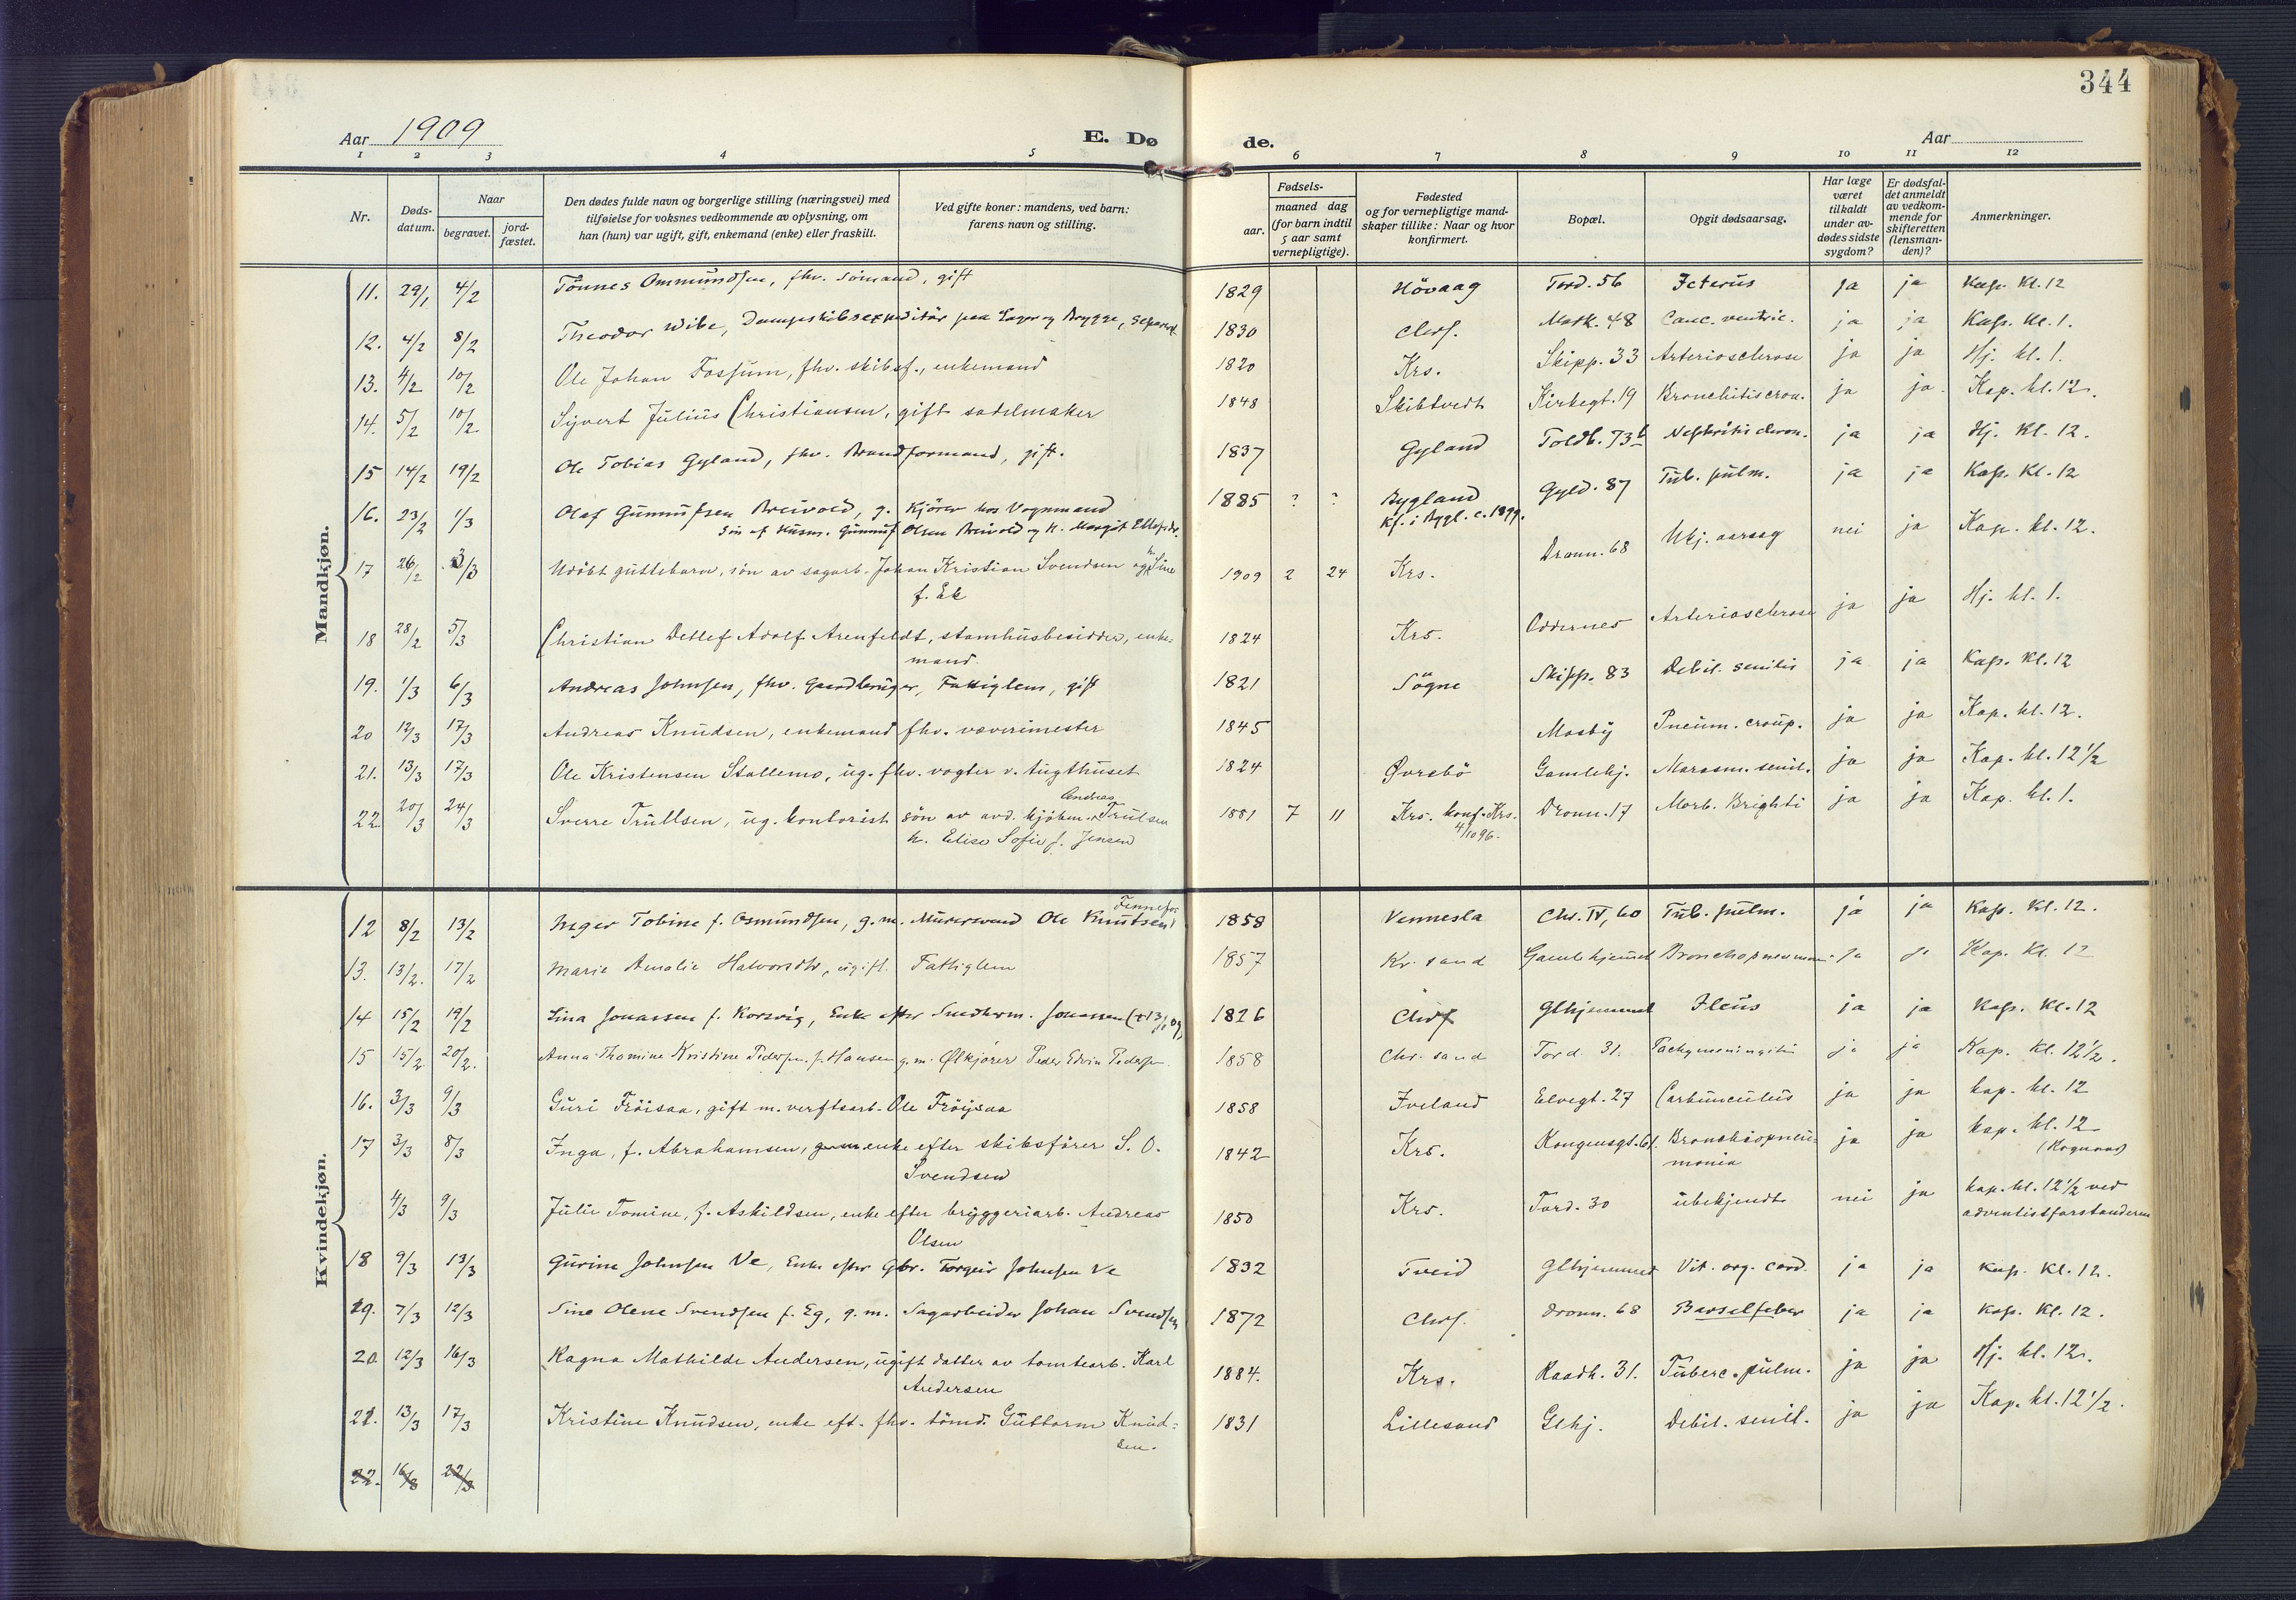 344
Aar 1909
E. Dø de.
Aar
1 2 3 4 5 6 7 8 9 10 11 12
Nr.
Døds-datum.
Naar
begravet.
jord-fæstet.
Den dødes fulde navn og borgerlige stilling (næringsvei) med
tilføielse for voksnes vedkommende av oplysning, om
han (hun) var ugift, gift, enkemand (enke) eller fraskilt.
Ved gifte koner: mandens, ved barn:
farens navn og stilling.
Fødsels-
aar.
maaned dag
(for barn indtil
5 aar samt
vernepligtige).
Fødested
og for vernepligtige mand-
skaper tillike: Naar og hvor
konfirmert.
Bopæl.
Opgit dødsaarsag.
Har læge
været
tilkaldt
under av-
dødes sidste
sygdom?
Er dødsfal-
det anmeldt
av vedkom-
mende for
skifteretten
(lensman-
den)?
Anmerkninger.
Mandkjøn.
11. 29/1 4/2 Tönnes Ommundsen, fhv. sömand, gift 1829 Hövaag Tord. 56 Icterus ja ja Kap. Kl. 12
12. 4/2 8/2 Theodor Wibe, Dampskibsexpeditör paa Lager og Brygge, separert 1830 Chrs. Mark. 48 Canc. ventric. ja ja Kap. Kl. 1.
13. 4/2 10/2 Ole Johan Fossum, fhv. skibsf., enkemand 1820 Krs. Skipp. 33 Arteriosclerose ja ja Hj. kl. 1.
14. 5/2 10/2 Sivert Julius Christiansen, gift sadelmaker 1848 Skibtvedt Kirkegt. 19 Bronchitis cron. ja ja Kap. kl. 12.
15 14/2 19/2 Ole Tobias Gyland, fhv. Brandformand, gift. 1837 Gyland Toldb. 73b Nefritis chron. ja ja Hj. Kl. 12.
16. 23/2 1/3 Olaf Gunnufsen Breivold, g. Kjörer hos Vognmand 1885 ? ? Bygland Gyld. 87 Tub. pulm. ja ja Kap. Kl. 12
Sön af Husm. Gunnuf Olsen Breivold og H. Margit Ellefsdr. Kf. i Bygl. c. 1899.
17 26/2 3/3 Udöbt guttebarn, sön av sagarb. Johan Kristian Svendsen og h. Sine 1909 2 24 Krs. Dronn. 68 Ukj. aarsag nei ja Kap. kl. 12.
f. Ek
18 28/2 5/3 Christian Detlef Adolf Arenfeldt, stamhusbesidder, enke- 1824 Krs. Oddernes Arteriosclerose ja ja Hj. kl. 1.
mand.
19. 1/3 6/3 Andreas Johnsen, fhv. Gaardbruger, Fattiglem, gift 1821 Sögne Skipp. 83 Debil. senilis ja ja Kap. Kl. 12
20 12/3 17/3 Andreas Knudsen, enkemand fhv. væverimester 1845 Mosby Pneum. croup. ja ja Kap. kl. 12.
21. 13/3 17/3 Ole Kristensen Stallemo, ug. fhv. vogter v. tugthuset 1824 Øvrebö Gamlehj. Marasm. senil. ja ja Kap. kl. 12 1/2
22. 20/3 24/3 Sverre Trullsen, ug. kontorist sön av avd. kjöbm. Andreas Trulsen 1881 7 11 Krs. konf. Krs. Dronn. 17 Morb. Brighti ja ja Kap. kl. 1.
h. Elise Sofie f. Jensen 4/10 96.
Kvindekjøn.
12 8/2 13/2 Inger Tobine f. Osmundsen, g. m. Murersvend Ole Knutsen 1858 Vennesla Chr. IV, 60 Tub. pulm. ja ja Kap. Kl. 12.
13. 13/2. 17/2 Marie Amalie Halvorsdtr, ugift. Fattiglem 1857 Kr. sand Gamlehjemmet Bronchopneumoni ja ja Kap. Kl. 12
14 15/2 19/2 Sina Jonassen f. Korsvig, Enke efter Snedkerm. Jonassen (†13/1 09) 1826 Chrs Glhjemmet Ileus ja ja Kap. Kl. 12
15 15/2 20/2. Anna Thomine Kristine Pedersen f. Hansen g. m. Ølkjörer Peder Edvin Pedersen. 1858 Chr. sand Tord. 31. Pachymeningitis ja ja Kap. Kl. 12 1/2.
16. 3/3 9/3 Guri Fröisaa, gift m. verftsarb. Ole Fröijsaa 1858 Iveland Elvegt. 27 Carbunculus ja ja kap. kl. 12
17 3/3 8/3 Inga, f. Abrahamsen, enke efter skibsförer S. O. 1842 Krs. Kongensgt. 61. Bronchiopneu- ja ja kap. kl. 12
Svendsen monia
4/3 9/3 Julie Tomine, f. Askildsen, enke efter bryggeriarb. Andreas 1850 Krs. Tord. 30 ubekjendt nei ja kap. kl. 12 1/2 ved
Olsen adventistforstanderen
18 9/3 13/3 Gurine Johnsen Ve, Enke efter Gbr. Torgeir Johnsen Ve 1832 Tveid Glhjemmet Vit. org. cord. ja ja Kap. Kl. 12.
19. 7/3 12/3 Sine Olene Svendsen f. Eg, g. m. Sagarbeider Johan Svendsen 1872 Chrs. Dronn. 68 Barselfeber ja ja Kap. Kl. 12.
20 12/3 16/3 Ragna Mathilde Andersen, ugift datter av tomtearb. Karl 1884. Krs. Raadh. 31. Tuberc. pulm. ja ja Hj. kl. 12.
Andersen
21. 13/3 17/3 Kristine Knudsen, enke eft. fhv. tömd. Guttorm Knud- 1831 Lillesand Glhj. Debil. senil. ja ja Kap. kl. 12 1/2.
sen.
22. 16/3 22/3